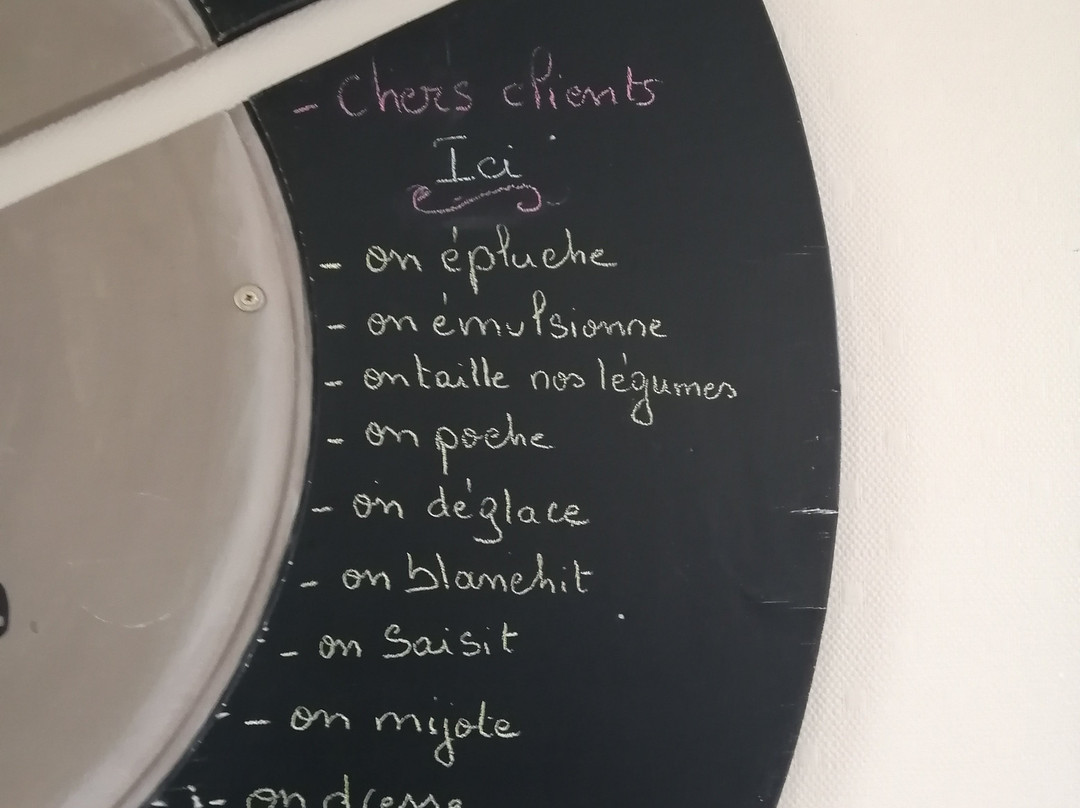 - Chers clients
Ici
- on épluche
- on émulsionne
- on taille nos légumes
- on poche
- on déglace
- on blanchit
- on Saisit
- on mijote
- on dresse